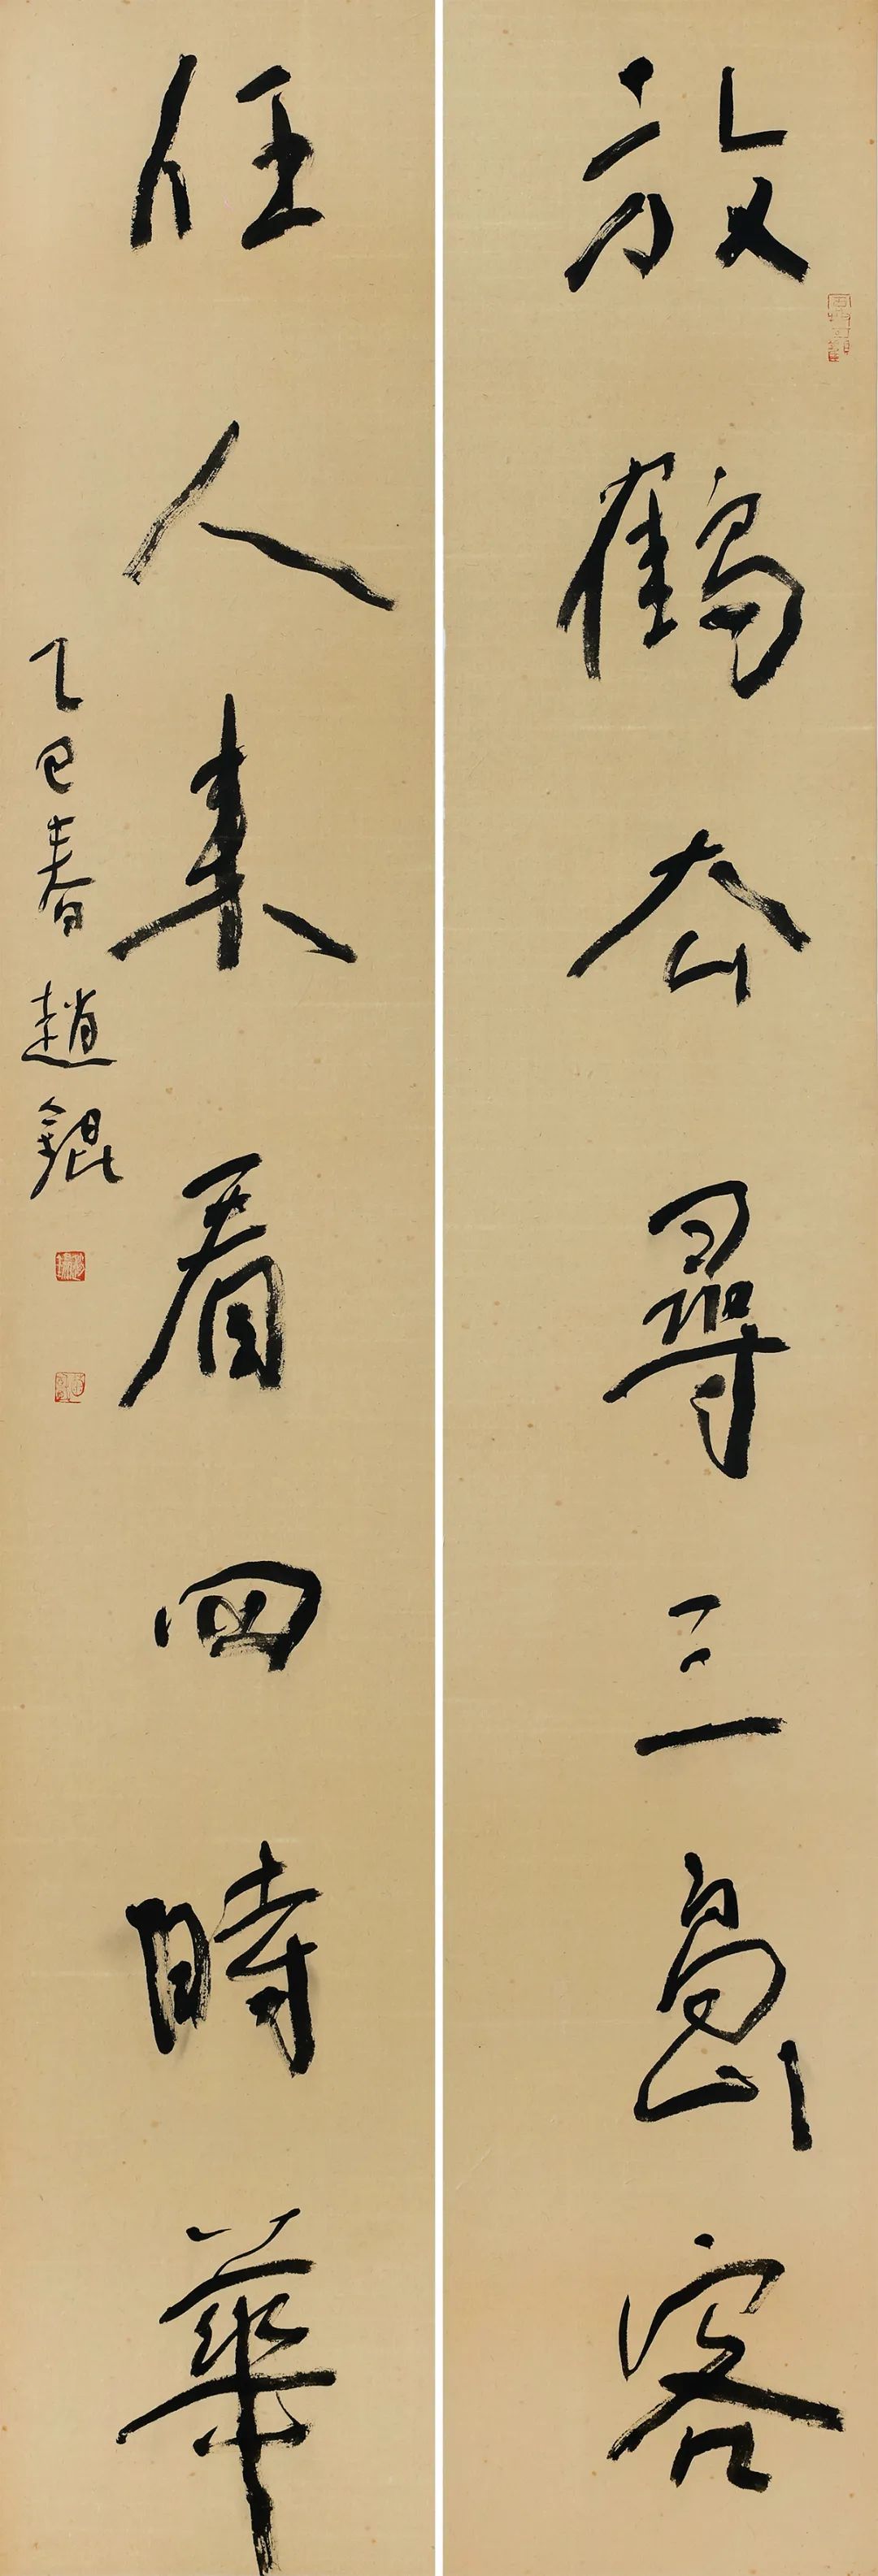 放鶴去尋三島客
任人来看四時華
乙巳春趙錕